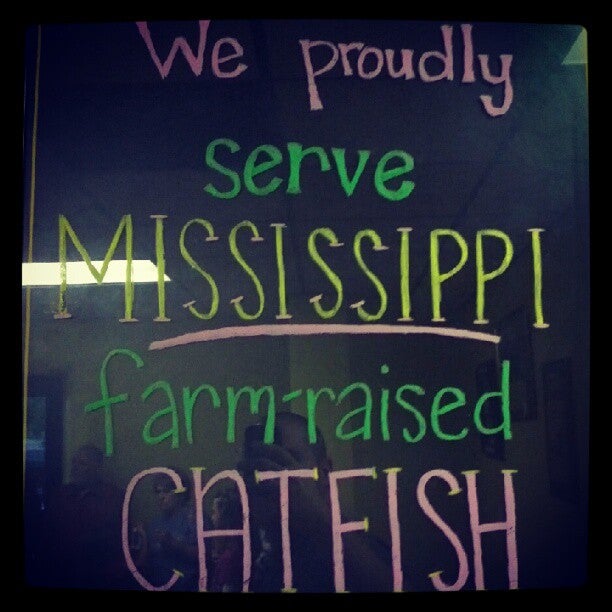 We proudly
serve
MISSISSIPPI
farm-raised
CATFISH